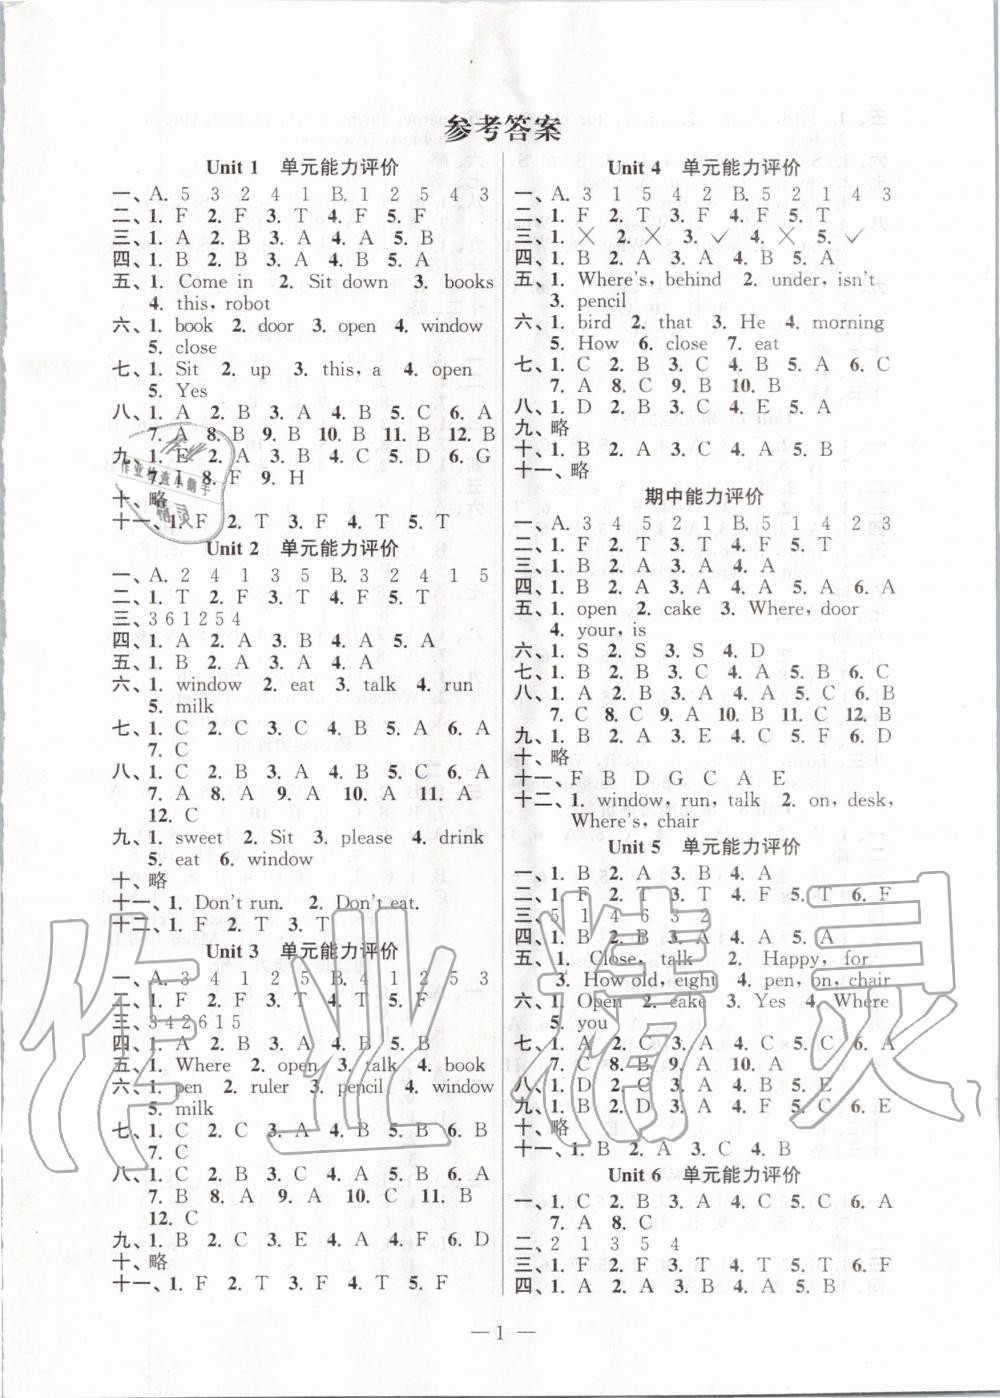 参考答案
Unit 1 单元能力评价
一、A. 5 3 2 4 1 B. 1 2 5 4 3
二、1. F 2. F 3. T 4. F 5. F
三、1. A 2. B 3. A 4. A 5. B
四、1. B 2. B 3. A 4. B 5. A
五、1. Come in 2. Sit down 3. books
4. this, robot
六、1. book 2. door 3. open 4. window
5. close
七、1. Sit 2. up 3. this, a 4. open
5. Yes
八、1. A 2. B 3. A 4. B 5. C 6. A
7. A 8. B 9. B 10. B 11. B 12. B
九、1. E 2. A 3. B 4. C 5. D 6. G
7. I 8. F 9. H
十、略
十一、1. F 2. T 3. F 4. T 5. T
Unit 2 单元能力评价
一、A. 2 4 1 3 5 B. 3 2 4 1 5
二、1. T 2. F 3. T 4. F 5. T
三、3 6 1 2 5 4
四、1. A 2. A 3. B 4. A 5. A
五、1. B 2. A 3. A 4. A
六、1. window 2. eat 3. talk 4. run
5. milk
七、1. C 2. C 3. C 4. B 5. A 6. A
7. C
八、1. C 2. B 3. A 4. B 5. C 6. A
7. A 8. A 9. A 10. A 11. A
12. C
九、1. sweet 2. Sit 3. please 4. drink
5. eat 6. window
十、略
十一、1. Don't run. 2. Don't eat.
十二、1. F 2. T 3. T
Unit 3 单元能力评价
一、A. 3 4 1 2 5 B. 4 1 2 5 3
二、1. F 2. F 3. T 4. T 5. F
三、3 4 2 6 1 5
四、1. A 2. B 3. A 4. B 5. B
五、1. Where 2. open 3. talk 4. book
六、1. pen 2. ruler 3. pencil 4. window
5. milk
七、1. C 2. C 3. A 4. B 5. B 6. B
7. C
八、1. C 2. B 3. C 4. A 5. B 6. A
7. B 8. A 9. A 10. C 11. B
12. C
九、1. B 2. C 3. E 4. A 4. F 6. D
十、略
十一、1. F 2. T 3. F 4. T 5. F
Unit 4 单元能力评价
一、A. 3 1 5 4 2 B. 5 2 1 4 3
二、1. F 2. T 3. F 4. F 5. T
三、1. ✕ 2. ✕ 3. ✓ 4. ✕ 5. ✓
四、1. B 2. A 3. A 4. B 5. A
五、1. Where's, behind 2. under, isn't
3. pencil
六、1. bird 2. that 3. He 4. morning
5. How 6. close 7. eat
七、1. C 2. B 3. C 4. B 5. A 6. C
7. A 8. C 9. B 10. B
八、1. D 2. B 3. C 4. E 5. A
九、略
十、1. B 2. A 3. C 4. A 5. B
十一、略
期中能力评价
一、A. 3 4 5 2 1 B. 5 1 4 2 3
二、1. F 2. T 3. T 4. F 5. T
三、1. B 2. A 3. A 4. A
四、1. B 2. A 3. A 4. A 5. A 6. A
五、1. open 2. cake 3. Where, door
4. your, is
六、1. S 2. S 3. S 4. D
七、1. B 2. B 3. C 4. A 5. B 6. C
八、1. A 2. B 3. A 4. A 5. C 6. B
7. C 8. C 9. A 10. B 11. C 12. B
九、1. B 2. A 3. E 4. C 5. F 6. D
十、略
十一、F B D G C A E
十二、1. window, run, talk 2. on, desk,
Where's, chair
Unit 5 单元能力评价
一、1. B 2. A 3. B 4. A
二、1. F 2. T 3. T 4. F 5. T 6. F
三、5 1 4 6 3 2
四、1. B 2. B 3. A 4. A 5. A
五、1. Close, talk 2. Happy, for
3. How old, eight 4. pen, on, chair
六、1. Open 2. cake 3. Yes 4. Where
5. you
七、1. A 2. C 3. A 4. C 5. C 6. A
7. C 8. B 9. A 10. A
八、1. D 2. C 3. A 4. B 5. E
九、1. B 2. D 3. A 4. F 5. C 6. E
十、略
十一、1. B 2. A 3. C 4. B
Unit 6 单元能力评价
一、1. C 2. B 3. A 4. C 5. C 6. A
7. A 8. C
二、2 1 3 5 4
三、1. F 2. F 3. T 4. T 5. T 6. F
四、1. A 2. A 3. B 4. A 5. B
— 1 —
作业精灵
作业检查小帮手
精灵